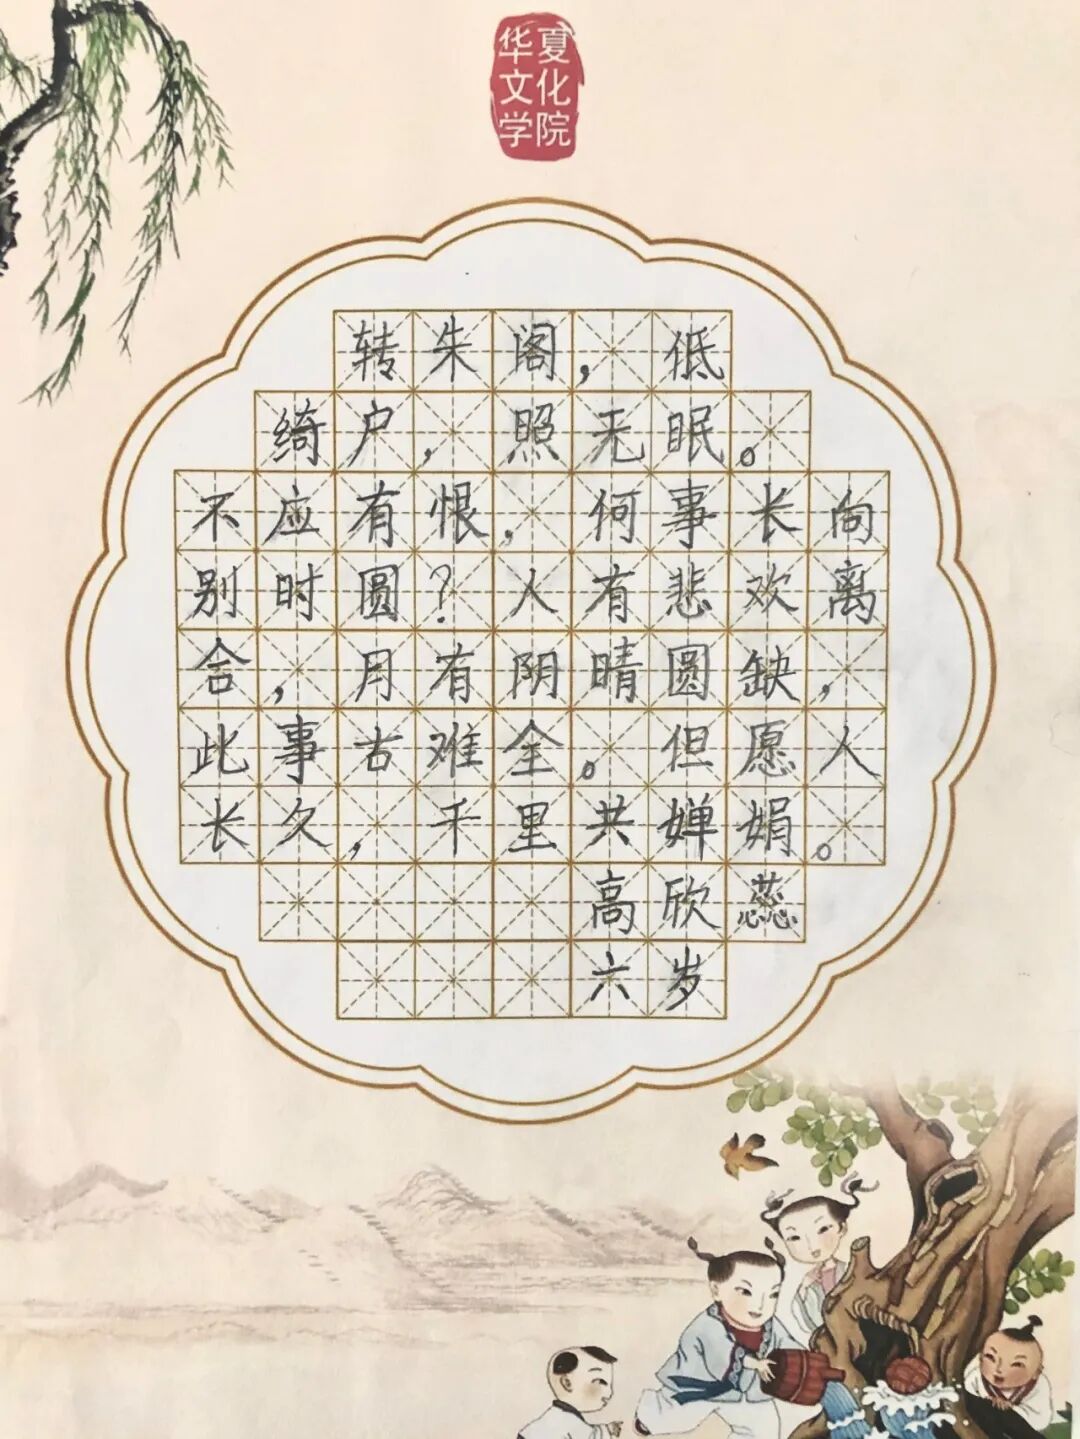 华夏
文化
学院
转朱阁，低
绮户，照无眠。
不应有恨，何事长向
别时圆？人有悲欢离
合，月有阴晴圆缺，
此事古难全。但愿人
长久，千里共婵娟。
高欣蕊
六岁